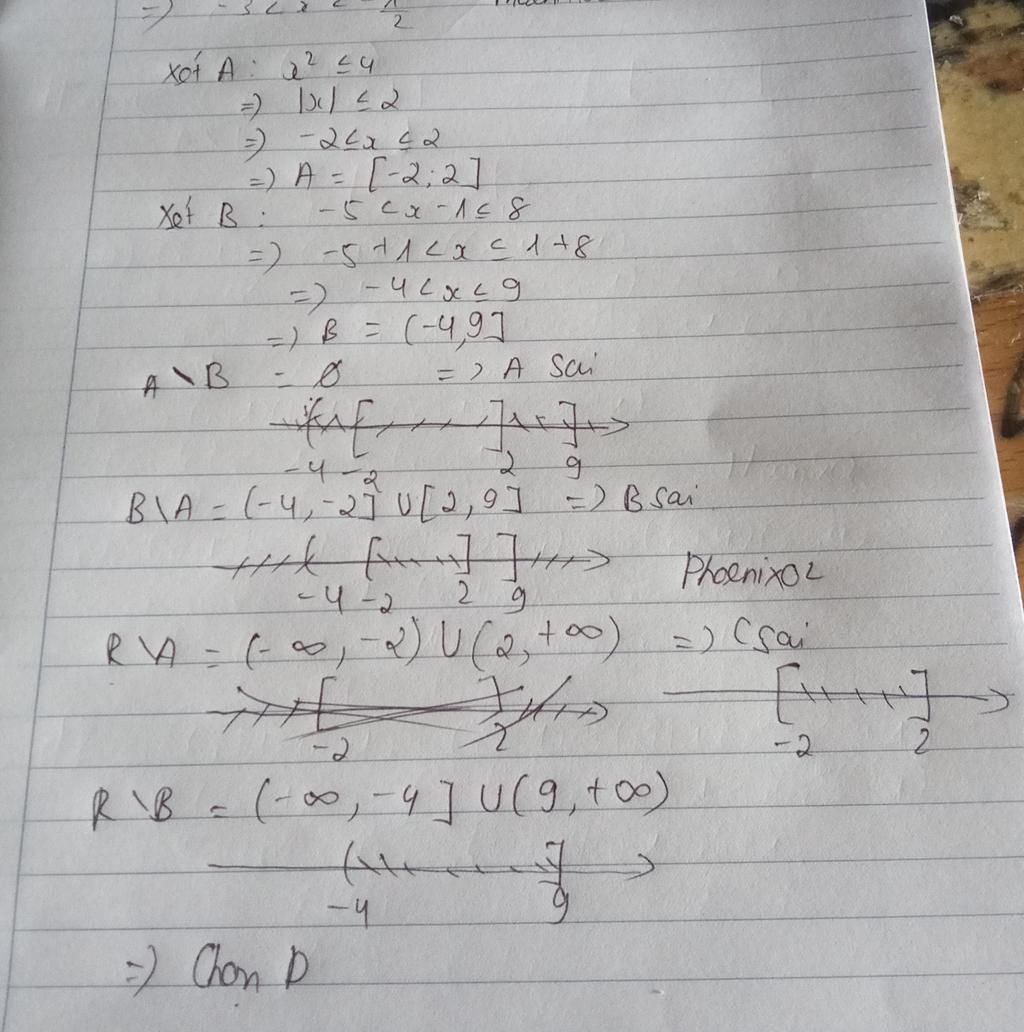 =) -3 < x < -1/2
Xét A : x² ≤ 4
=) |x| ≤ 2
=) -2 ≤ x ≤ 2
=) A = [-2; 2]
Xét B : -5 < x - 1 ≤ 8
=) -5 + 1 < x ≤ 1 + 8
=) -4 < x ≤ 9
=) B = (-4, 9]
A \ B = Ø => A Sai
-4 -2 2 9
B \ A = (-4, -2] U [2, 9] =) B Sai
-4 -2 2 9
Phoenixo2
R \ A = (-∞, -2) U (2, +∞) =) C Sai
-2 2 -2 2
R \ B = (-∞, -4] U (9, +∞)
-4 9
=) Chọn D